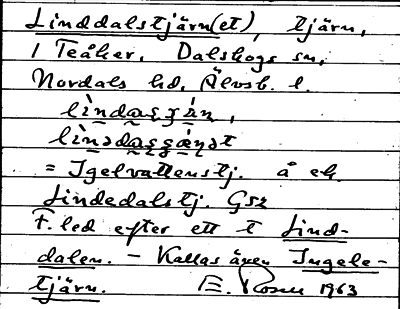 Linddalstjärn(et), tjärn,
i Teåker, Dalskogs sn,
Nordals hd, Älvsb. l.
= Igelvattenstj. å ek.
Lindedalstj. GSZ
F. led efter ett t Lind-
dalen. – Kallas även Ingele-
tjärn. E. Rosell 1963